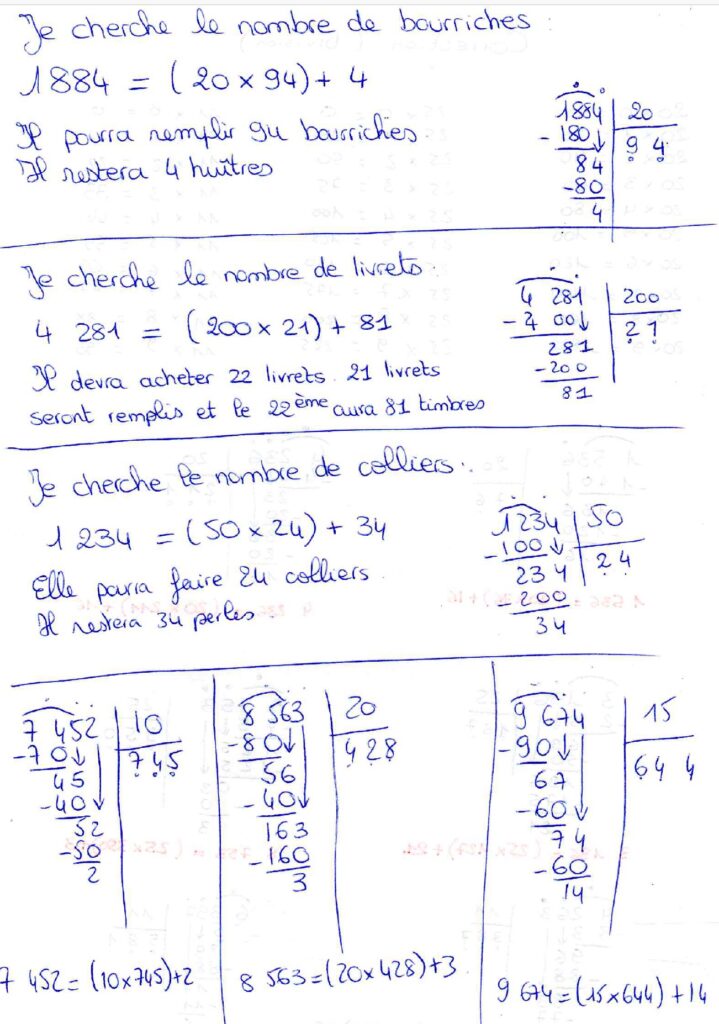 Je cherche le nombre de bourriches :
1884 = (20 x 94) + 4
Il pourra remplir 94 bourriches.
Il restera 4 huîtres
1884 | 20
- 180 | 94
84
-80
4
Je cherche le nombre de livrets :
4 281 = (200 x 21) + 81
Il devra acheter 22 livrets. 21 livrets
seront remplis et le 22ème aura 81 timbres
4 281 | 200
- 4 00 | 21
281
-200
81
Je cherche le nombre de colliers :
1 234 = (50 x 24) + 34
Elle pourra faire 24 colliers.
Il restera 34 perles.
1234 | 50
-100 | 24
234
- 200
34
7 452 | 10
-70 | 745
45
-40
52
-50
2
7 452 = (10x745)+2
8 563 | 20
-80 | 428
56
-40
163
-160
3
8 563=(20x428)+3
9 674 | 15
-90 | 644
67
-60
74
-60
14
9 674=(15x644) +14